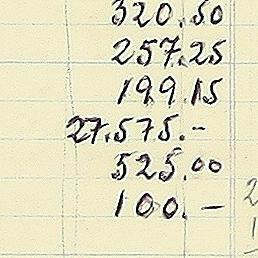 320.50
257.25
199.15
27.575.-
525.00
100.-